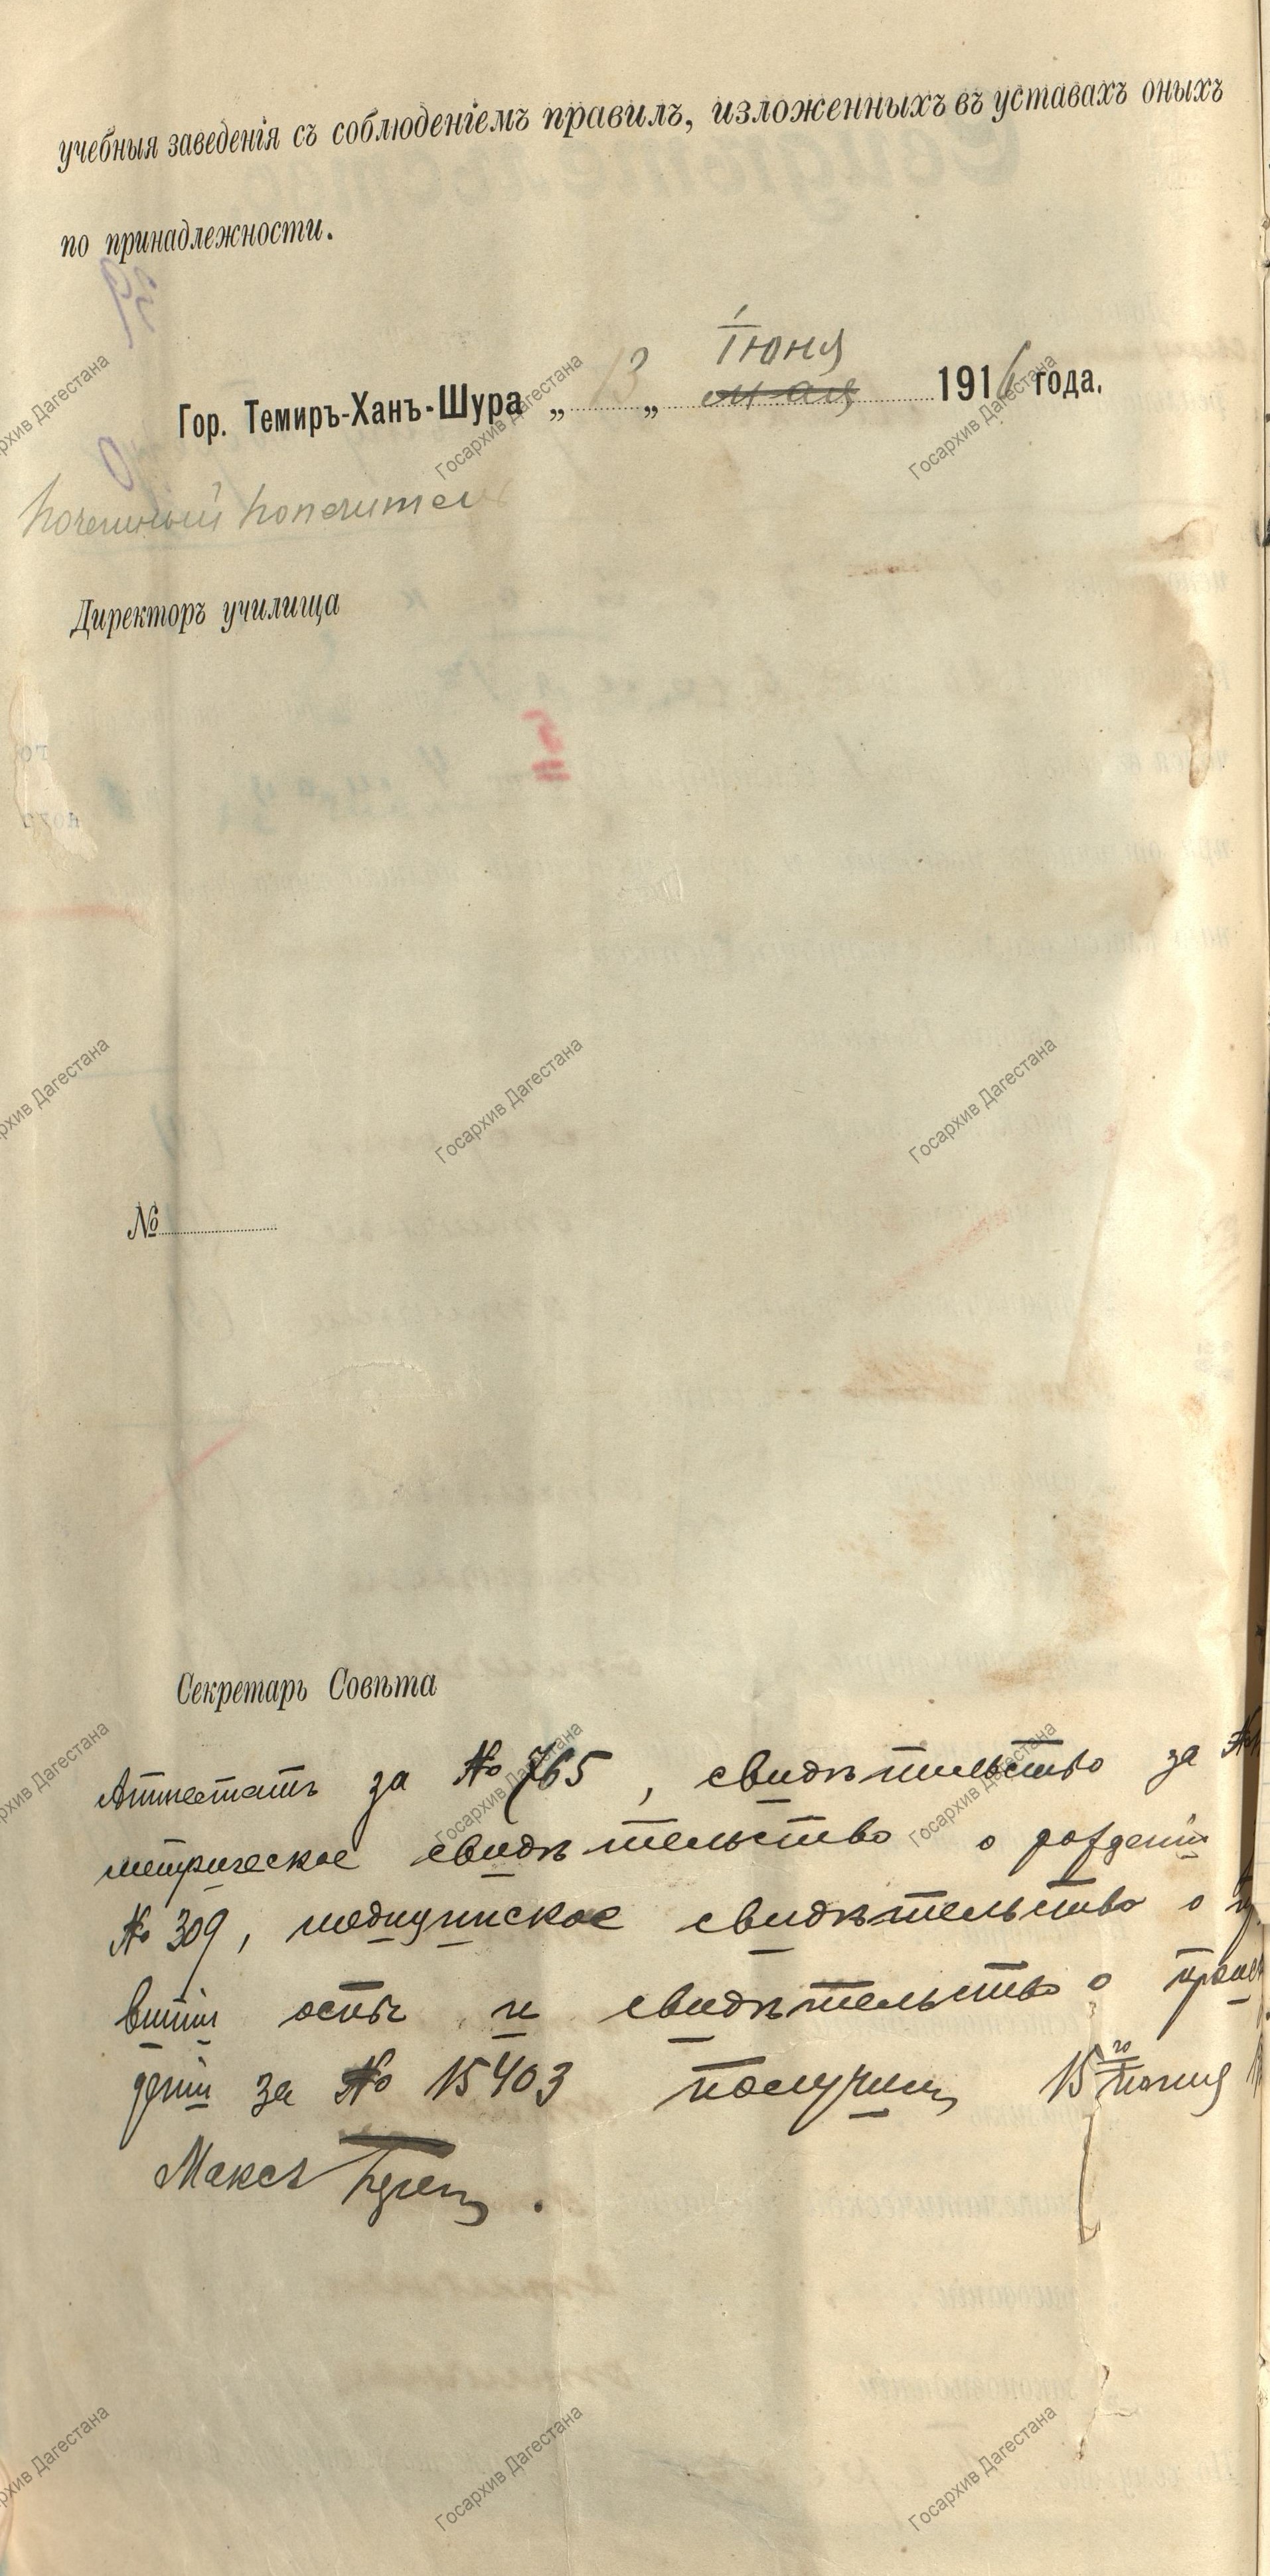 учебныя заведенія съ соблюденіемъ правилъ, изложенныхъ въ уставахъ оныхъ
по принадлежности.
Іюня
Гор. Темиръ-Ханъ-Шура „ 13 „ мая 1916 года.
Почетный Попечитель
Директоръ училища
5
№
Секретарь Совѣта
Аттестатъ за № 765, свидѣтельство за №
метрическое свидѣтельство о рожденіи
№ 309, медицинское свидѣтельство о
витіи оспы и свидѣтельство о
деніи за № 15403 получилъ 15го Іюня
Максъ
Госархив Дагестана